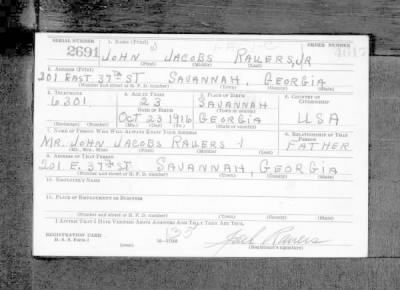 SERIAL NUMBER 1. NAME (Print) ORDER NUMBER
2691 JOHN JACOBS RAUERS, JR
(First) (Middle) (Last)
2. ADDRESS (Print)
201 EAST 37TH ST SAVANNAH, GEORGIA
(Number and street or R. F. D. number) (Town) (County) (State)
3. TELEPHONE 4. AGE IN YEARS 5. PLACE OF BIRTH 6. COUNTRY OF CITIZENSHIP
6301 23 SAVANNAH
DATE OF BIRTH (Town or county)
OCT 23 1916 GEORGIA USA
(Exchange) (Number) (Mo.) (Day) (Yr.) (State or country)
7. NAME OF PERSON WHO WILL ALWAYS KNOW YOUR ADDRESS 8. RELATIONSHIP OF THAT PERSON
MR. JOHN JACOBS RAUERS FATHER
(Mr., Mrs., Miss) (First) (Middle) (Last)
9. ADDRESS OF THAT PERSON
201 E. 37TH ST SAVANNAH, GEORGIA
(Number and street or R. F. D. number) (Town) (County) (State)
10. EMPLOYER'S NAME
11. PLACE OF EMPLOYMENT OR BUSINESS
(Number and street or R. F. D. number) (Town) (County) (State)
I AFFIRM THAT I HAVE VERIFIED ABOVE ANSWERS AND THAT THEY ARE TRUE.
REGISTRATION CARD
D. S. S. Form 1 (over) Jack Rauers
(Registrant's signature)